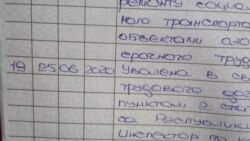 ремонту социа
ного транспорта
объектами
срасного труд
19 25 06 2020 Уволена в св
трудового дог
пунктом 2 ста
са Республики
инспектор по к